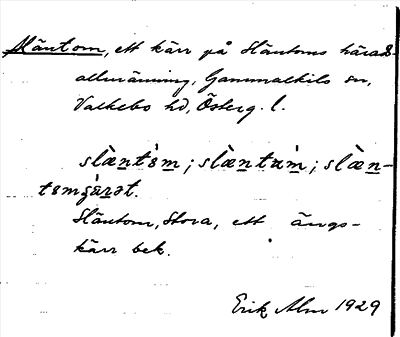 Släntom, ett kärr på Släntoms härads-
allmänning, Gammalkils sn,
Valkebo hd, Österg. l.
slæ̀ntòm; slæ̀ntùm; slæ̀n-
tomgǽrət.
Släntom, Stora, ett ängs-
kärr bek.
Erik Alm 1929